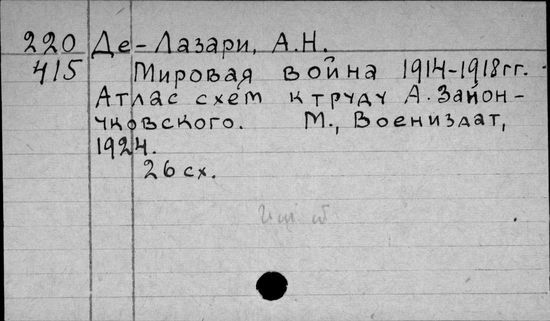 220 Де-Лазари, А.Н.
415 Мировая война 1914-1918гг.
Атлас схем к труду А. Зайон-
чковского. М., Воениздат,
1924.
26 сх.